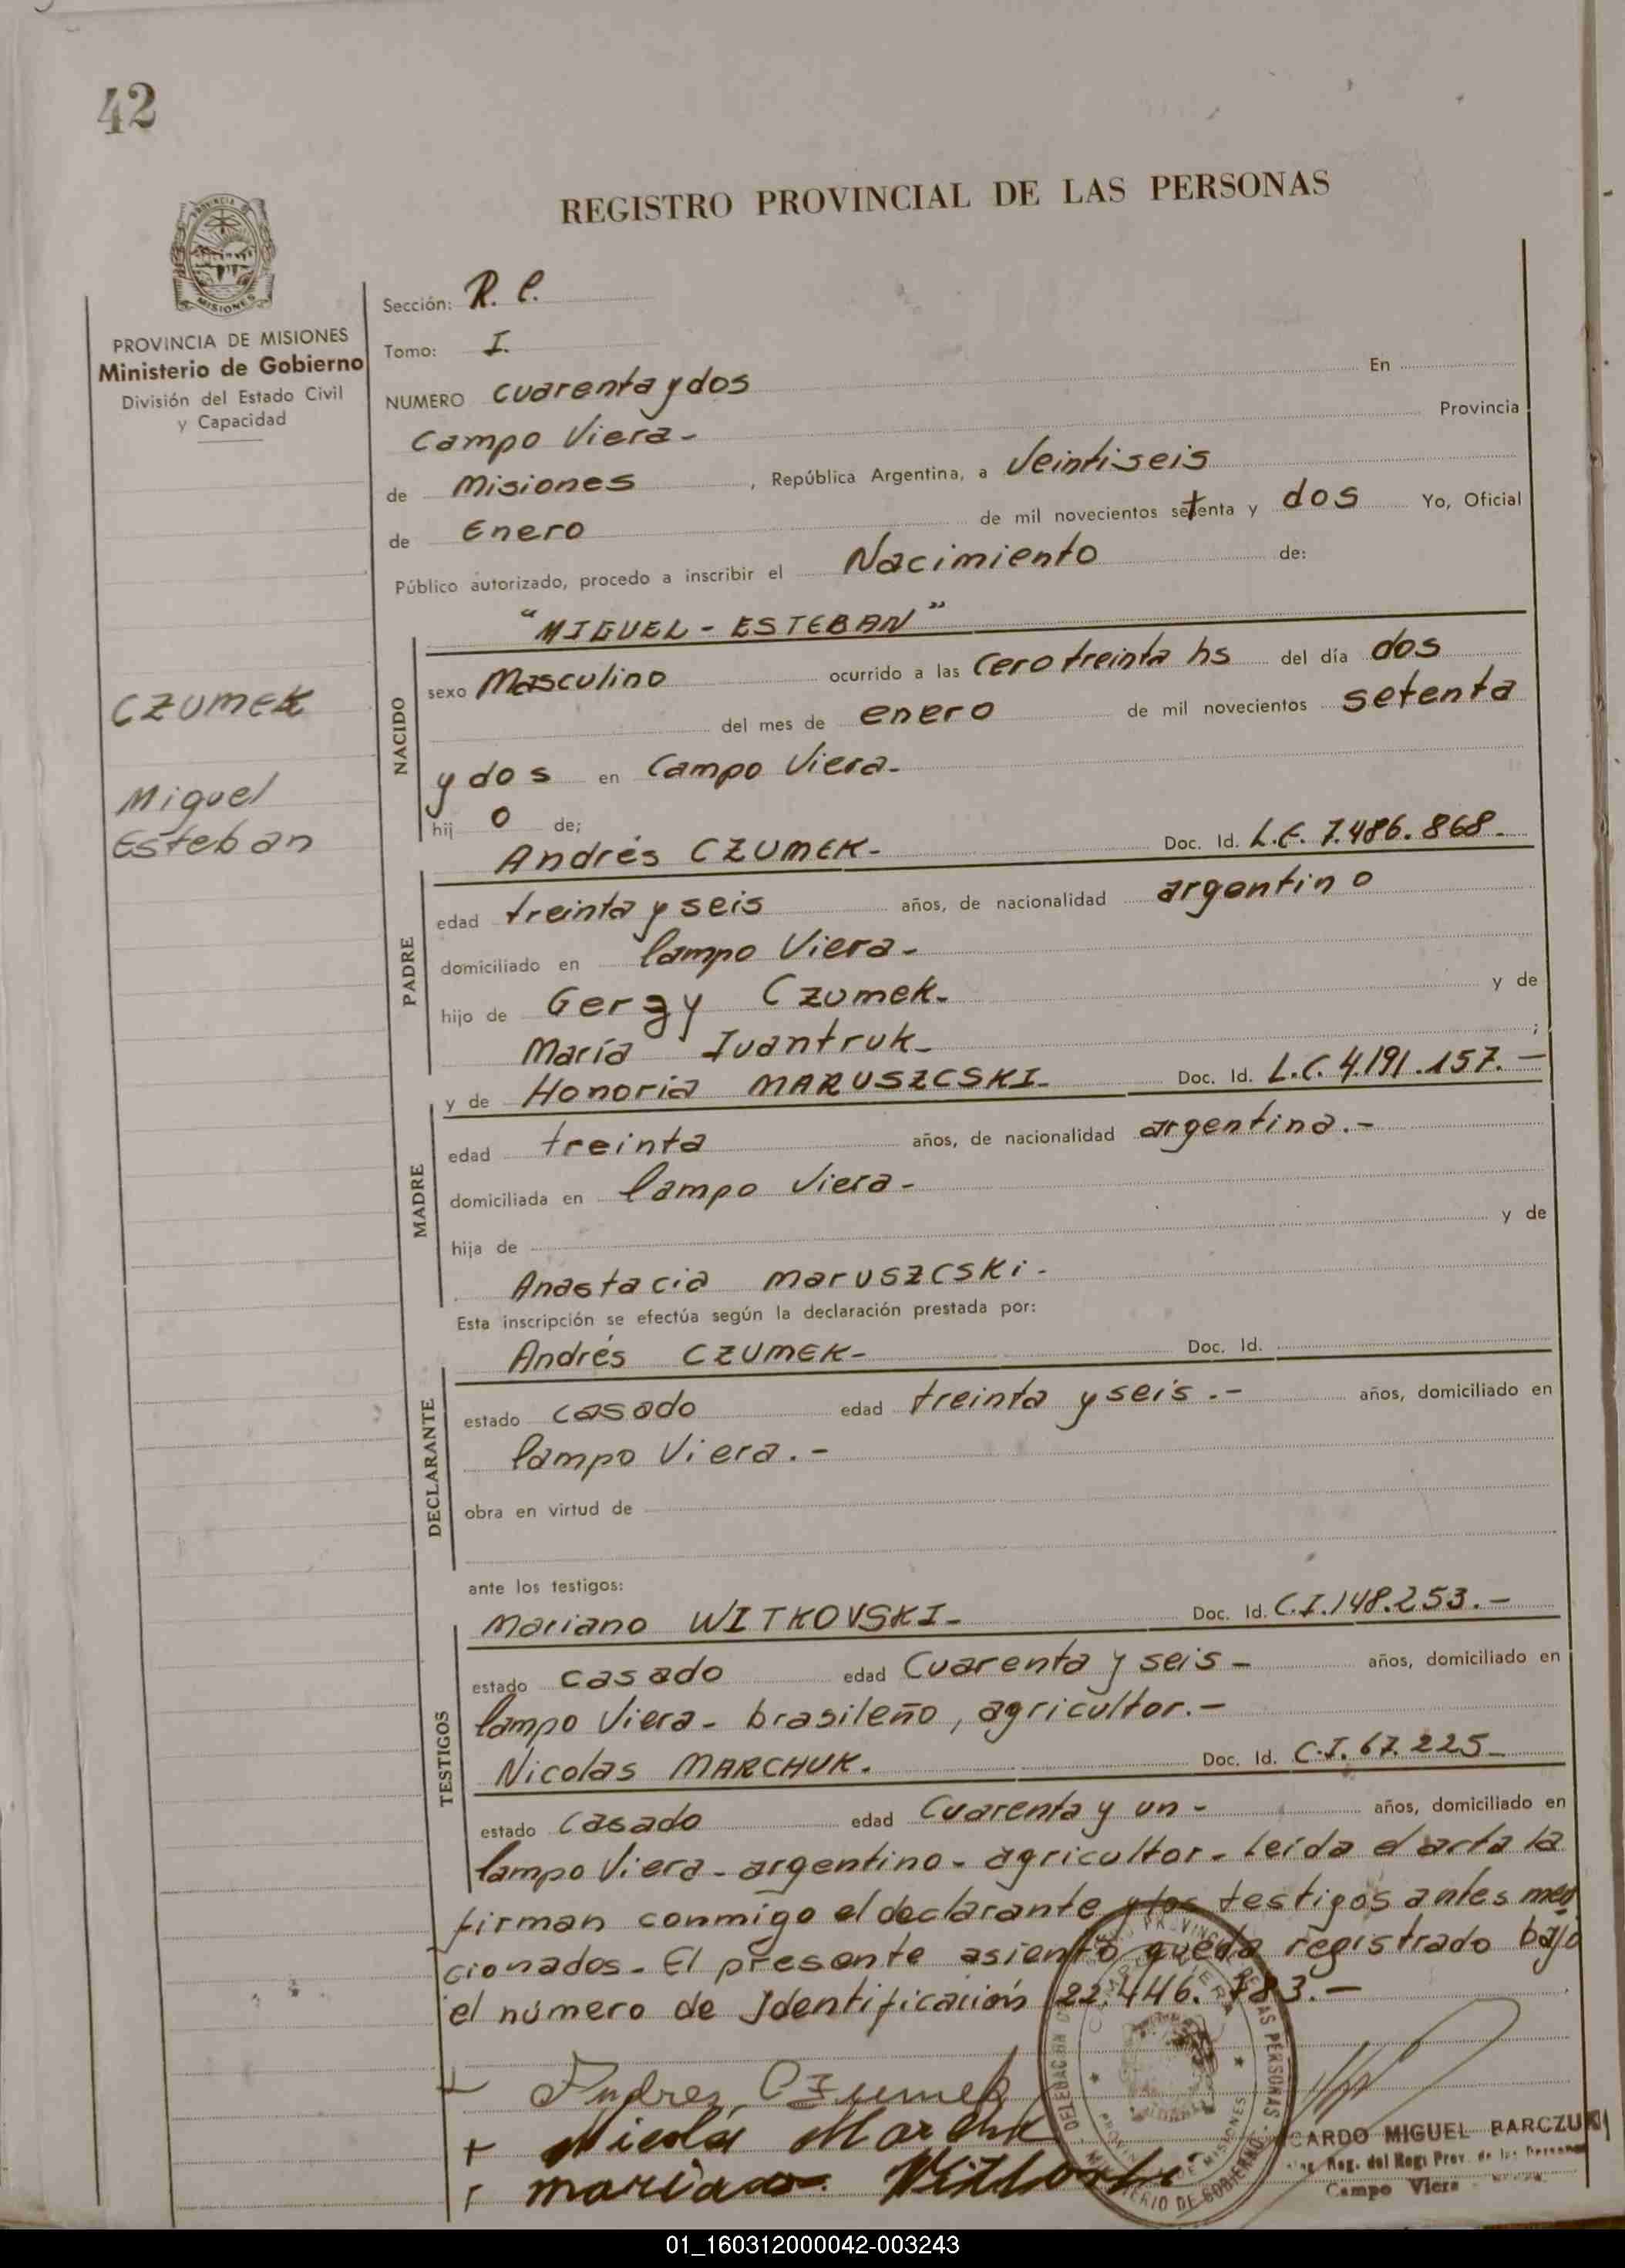 42
REGISTRO PROVINCIAL DE LAS PERSONAS
PROVINCIA DE MISIONES
Ministerio de Gobierno
División del Estado Civil
y Capacidad
Sección: R. C.
Tomo: I.
NUMERO cuarenta y dos En
Campo Viera - Provincia
de Misiones, República Argentina, a Veintiseis
de Enero de mil novecientos setenta y dos Yo, Oficial
Público autorizado, procedo a inscribir el Nacimiento de:
"MIGUEL - ESTEBAN"
CZUMEK
Miguel
Esteban
NACIDO
sexo Masculino ocurrido a las Cero treinta hs del día dos
del mes de enero de mil novecientos setenta
y dos en Campo Viera -
hij o de;
Andrés CZUMEK - Doc. Id. L.E. 7.486.868.
PADRE
edad treinta y seis años, de nacionalidad argentino
domiciliado en Campo Viera -
hijo de Gergy Czumek - y de
María Ivantruk - ;
y de Honoria MARUSZCSKI - Doc. Id. L.C. 4.191.157. -
MADRE
edad treinta años, de nacionalidad argentina. -
domiciliada en Campo Viera -
hija de y de
Anastacia Maruszcski -
Esta inscripción se efectúa según la declaración prestada por:
Andrés CZUMEK - Doc. Id.
DECLARANTE
estado casado edad treinta y seis . - años, domiciliado en
Campo Viera. -
obra en virtud de
ante los testigos:
Mariano WITKOVSKI - Doc. Id. C.I. 148.253. -
TESTIGOS
estado casado edad Cuarenta y seis - años, domiciliado en
Campo Viera - brasileño, agricultor. -
Nicolas MARCHUK. Doc. Id. C.I. 67.225 -
estado casado edad Cuarenta y un - años, domiciliado en
Campo Viera - argentino - agricultor - Leída el acta la
firman conmigo el declarante y los testigos antes men
cionados - El presente asiento queda registrado bajo
el número de Identificación 22.446.783. -
Andres Czumek
Nicolás Marchuk
mariano Witkoski
CARDO MIGUEL BARCZUK
Campo Viera
01_160312000042-003243